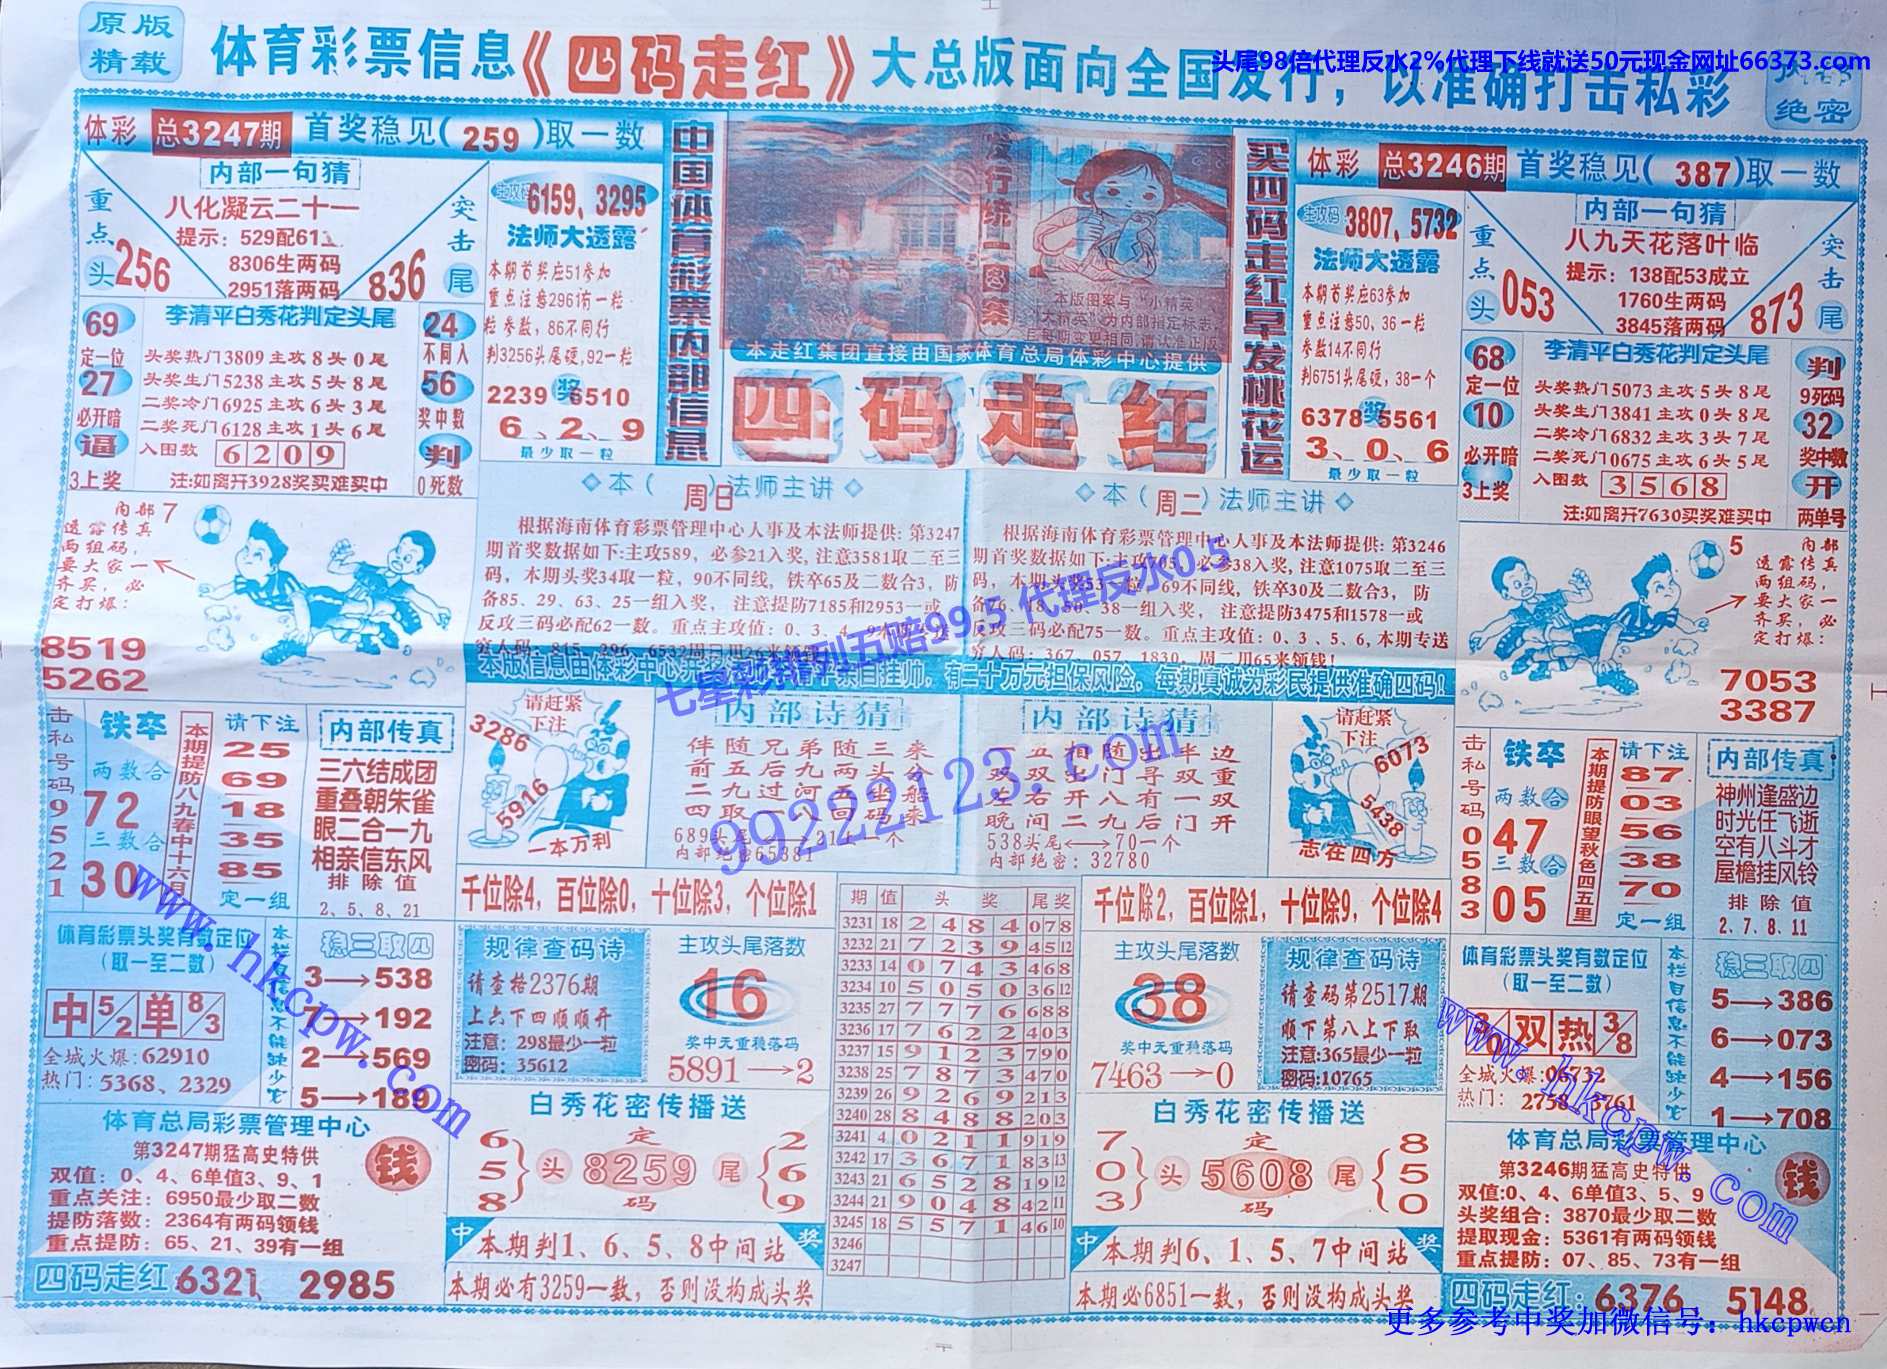 原版
精载
体育彩票信息《四码走红》大总版面向全国发行，以准确打击私彩
头尾98倍代理反水2%代理下线就送50元现金网址66373.com
绝密
体彩 总3247期 首奖稳见(259)取一数
内部一句猜
八化凝云二十一
提示：529配61
8306生两码
2951落两码
重点头 256
突击尾 836
主攻码 6159、3295
法师大透露
本期首奖应51参加
重点注意296有一粒
粒参数，86不同行
判3256头尾硬，92一粒
2239 奖 6510
6、2、9
最少取一粒
69
定一位
27
必开暗
逼
3上奖
李清平白秀花判定头尾
头奖热门3809主攻8头0尾
头奖生门5238主攻5头8尾
二奖冷门6925主攻6头3尾
二奖死门6128主攻1头6尾
入围数 6209
注:如离开3928奖买难买中
24
不同人
56
奖中数
判
0死数
中国体育彩票内部信息
发行统一图案
本版图案与“小精英”
大精英”为内部指定标志，
每期变更相同，请认准正版
本走红集团直接由国家体育总局体彩中心提供
四码走红
买四码走红早发桃花运
体彩 总3246期 首奖稳见(387)取一数
内部一句猜
八九天花落叶临
提示：138配53成立
1760生两码
3845落两码
重点头 053
突击尾 873
主攻码 3807、5732
法师大透露
本期首奖应63参加
重点注意50、36一粒
参数14不同行
判6751头尾硬，38一个
6378 奖 5561
3、0、6
最少取一粒
68
定一位
10
必开暗
3上奖
李清平白秀花判定头尾
头奖热门5073主攻5头8尾
头奖生门3841主攻0头8尾
二奖冷门6832主攻3头7尾
二奖死门0675主攻6头5尾
入围数 3568
注:如离开7630买奖难买中
判
9死码
32
奖中数
开
两单号
内部7
透露传真
两组码，
要大家一
齐买，必
定打爆：
8519
5262
本(周日)法师主讲
根据海南体育彩票管理中心人事及本法师提供：第3247
期首奖数据如下:主攻589，必参21入奖，注意3581取二至三
码，本期头奖34取一粒，90不同线，铁卒65及二数合3，防
备85、29、63、25一组入奖， 注意提防7185和2953一或
反攻三码必配62一数。重点主攻值：0、3、4、9
穷人码：815、296、6532周日用26来领钱
本(周二)法师主讲
根据海南体育彩票管理中心人事及本法师提供：第3246
期首奖数据如下:主攻705，必参38入奖，注意1075取二至三
码，本期头奖53一粒，69不同线，铁卒30及二数合3， 防
备76、18、50、38一组入奖， 注意提防3475和1578一或
反攻三码必配75一数。重点主攻值：0、3、5、6，本期专送
穷人码：367、057、1830，周二用65来领钱！
有二十万元担保风险，每期真诚为彩民提供准确四码！
5 内部
透露传真
两组码，
要大家一
齐买，必
定打爆：
7053
3387
七星彩排列五赔99.5 代理反水0.5
99222123.com
击私号码9521
铁卒
两数合
72
三数合
30
本期提防八九春中十六月
请下注
25
69
18
35
85
定一组
内部传真
三六结成团
重叠朝朱雀
眼二合一九
相亲信东风
排除值
2、5、8、21
请赶紧
下注
3286
5916
一本万利
内部诗猜
伴随兄弟随三来
前五后九两头分
二九过河五坐船
四取一八回码来
内部绝密65381
内部诗猜
双双出门寻双重
左右开八有一双
晚间二九后门开
538头尾←→70一个
内部绝密：32780
请赶紧
下注
6073
5438
志在四方
击私号码0583
铁卒
两数合
47
三数合
05
本期提防眼望秋色四五里
请下注
87
03
56
38
70
定一组
内部传真
神州逢盛边
时光任飞逝
空有八斗才
屋檐挂风铃
排除值
2、7、8、11
千位除4，百位除0，十位除3，个位除1
千位除2，百位除1，十位除9，个位除4
期 值 头奖 尾奖
3231 18 2 4 8 4 078
3232 21 7 2 3 9 45 12
3233 14 0 7 4 3 468
3234 10 5 0 5 0 36 12
3235 27 7 7 7 6 688
3236 17 7 6 2 2 403
3237 15 9 1 2 3 790
3238 25 7 8 7 3 470
3239 26 9 2 6 9 213
3240 28 8 4 8 8 203
3241 4 0 2 1 1 919
3242 17 3 6 7 1 83 13
3243 21 6 5 2 8 19 12
3244 21 9 0 4 8 42 11
3245 18 5 5 7 1 46 10
3246
3247
体育彩票头奖有数定位
(取一至二数)
中 5/2 单 8/3
全城火爆：62910
热门：5368、2329
本栏目信息不能缺少它
稳三取四
3→538
7→192
2→569
5→189
规律查码诗
请查格2376期
上六下四顺顺开
注意：298最少一粒
密码：35612
主攻头尾落数
16
奖中无重稳落码
5891→2
主攻头尾落数
38
奖中无重稳落码
7463→0
规律查码诗
请查码第2517期
顺下第八上下取
注意:365最少一粒
密码:10765
体育彩票头奖有数定位
(取一至二数)
双 热 3/8
全城火爆:06732
热门：
本栏目信息不能缺少它
稳三取四
5→386
6→073
4→156
1→708
www.hkcpw.com
www.hkcpw.com
体育总局彩票管理中心
第3247期猛高史特供
双值：0、4、6单值3、9、1
重点关注：6950最少取二数
提防落数：2364有两码领钱
重点提防：65、21、39有一组
钱
四码走红:6321、2985
白秀花密传播送
6
5
8
头 定 8259 码 尾
2
6
9
中 本期判1、6、5、8中间站 奖
本期必有3259一数，否则没构成头奖
白秀花密传播送
7
0
3
头 定 5608 码 尾
8
5
0
中 本期判6、1、5、7中间站 奖
本期必6851一数，否则没构成头奖
体育总局彩票管理中心
第3246期猛高史特供
双值:0、4、6单值3、5、9
头奖组合：3870最少取二数
提取现金：5361有两码领钱
重点提防：07、85、73有一组
钱
四码走红：6376、5148
更多参考中奖加微信号：hkcpwcn